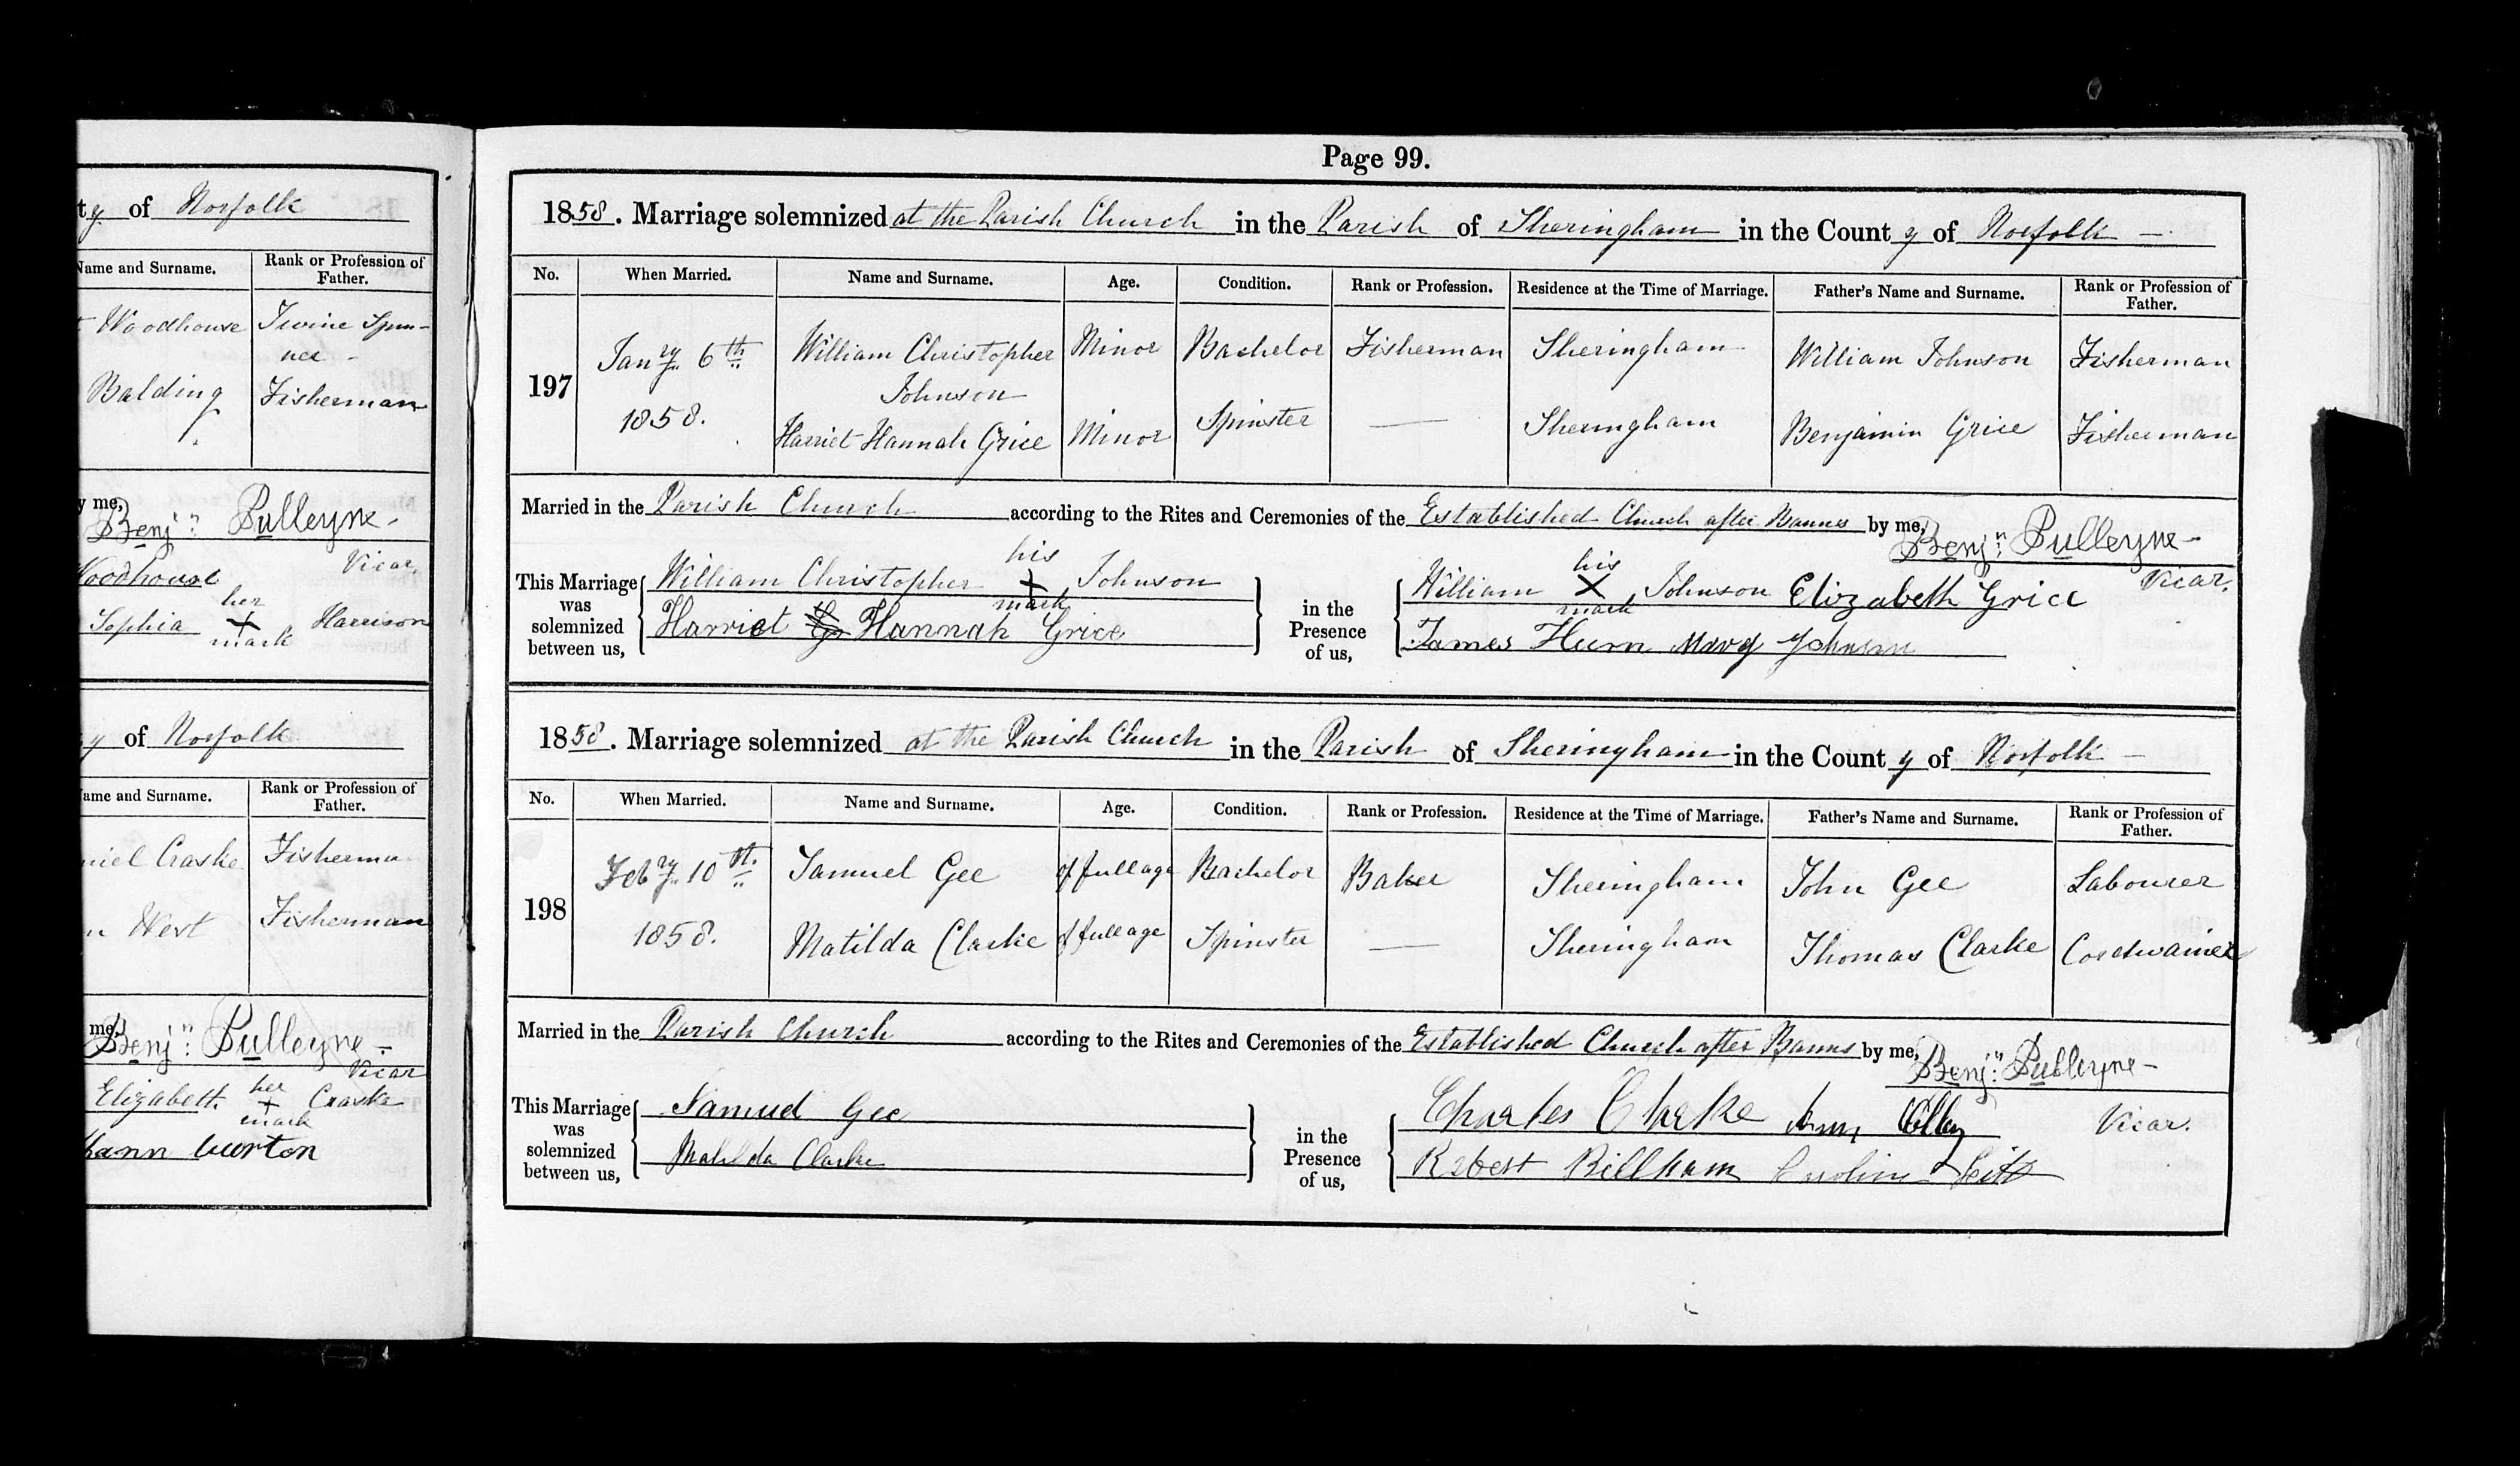 ty of Norfolk
Name and Surname. Rank or Profession of Father.
Woodhouse Twine Spin-
ner -
Balding Fisherman
y me, Benjn: Pulleyne -
Vicar.
Woodhouse
her
Sophia X Harrison
mark
y of Norfolk
ame and Surname. Rank or Profession of Father.
niel Craske Fisherman
n West Fisherman
me, Benjn: Pulleyne -
Vicar
her
Elizabeth + Craske
mark
Page 99.
1858. Marriage solemnized at the Parish Church in the Parish of Sheringham in the County of Norfolk —
No. When Married. Name and Surname. Age. Condition. Rank or Profession. Residence at the Time of Marriage. Father's Name and Surname. Rank or Profession of Father.
197 Jany. 6th William Christopher Minor Bachelor Fisherman Sheringham William Johnson Fisherman
Johnson
1858. Harriet Hannah Grice Minor Spinster — Sheringham Benjamin Grice Fisherman
Married in the Parish Church according to the Rites and Ceremonies of the Established Church after Banns by me, Benjn: Pulleyne -
Vicar.
This Marriage was solemnized between us,
his
William Christopher + Johnson
mark
Harriet Hannah Grice
in the Presence of us,
his
William X Johnson Elizabeth Grice
mark
James Hurn Mary Johnson
1858. Marriage solemnized at the Parish Church in the Parish of Sheringham in the County of Norfolk —
No. When Married. Name and Surname. Age. Condition. Rank or Profession. Residence at the Time of Marriage. Father's Name and Surname. Rank or Profession of Father.
198 Feby. 10th. Samuel Gee of full age Bachelor Baker Sheringham John Gee Labourer
1858. Matilda Clarke of full age Spinster — Sheringham Thomas Clarke Cordwainer
Married in the Parish Church according to the Rites and Ceremonies of the Established Church after Banns by me, Benjn: Pulleyne -
Vicar.
This Marriage was solemnized between us,
Samuel Gee
Matilda Clarke
in the Presence of us,
Charles Clarke
Robert Billham Caroline